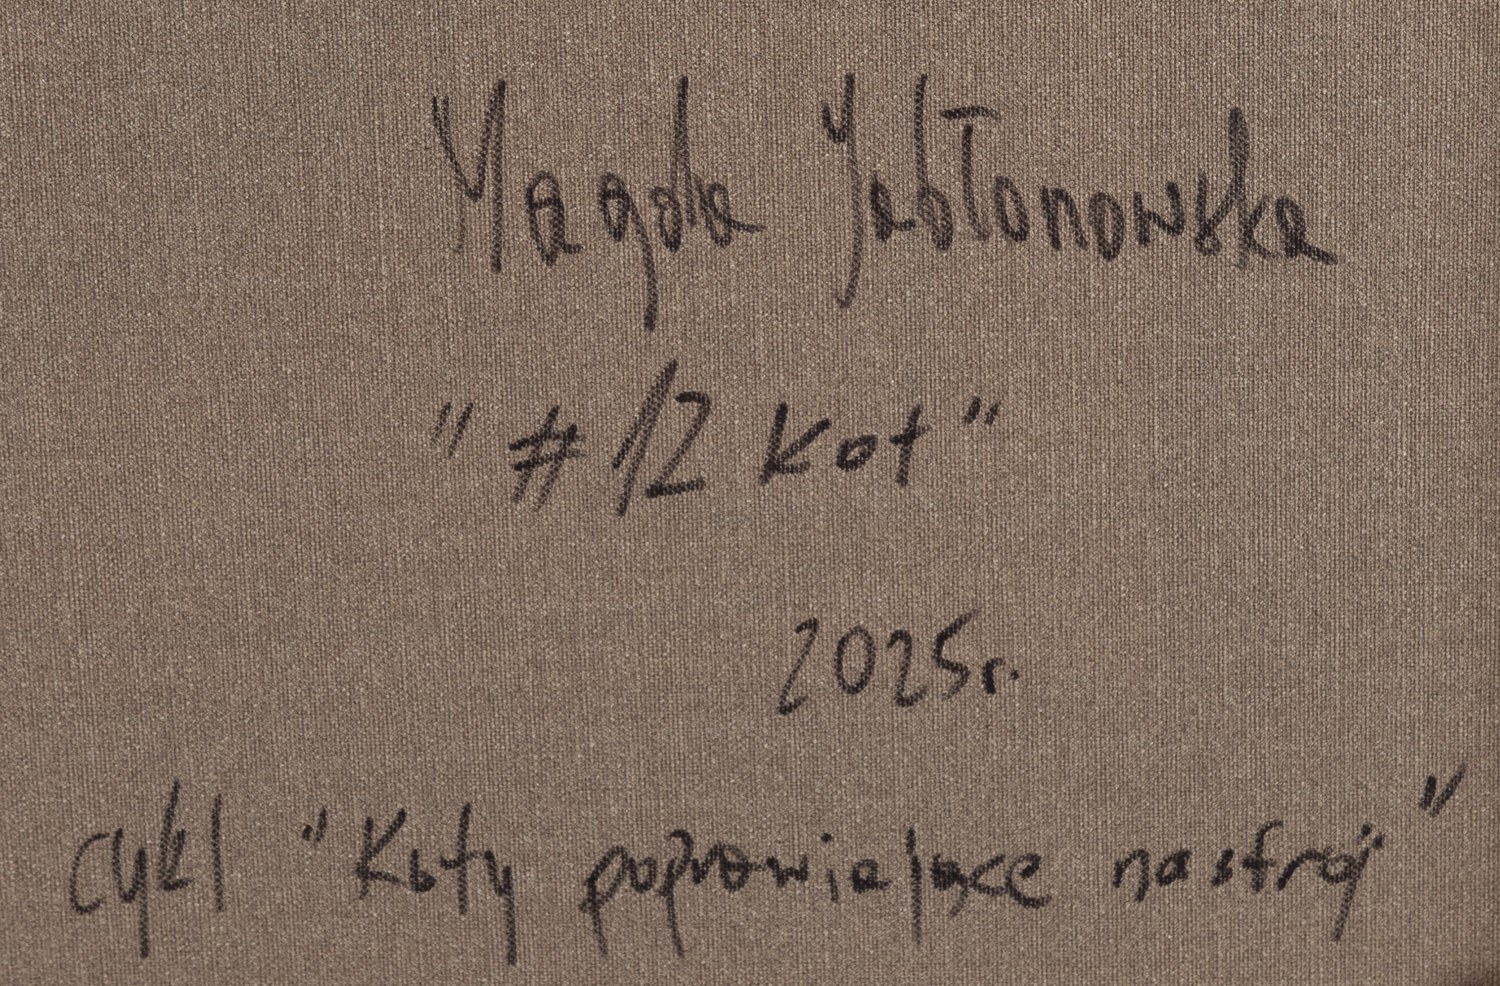 Magda Jabłonowska
"#12 Kot"
2025r.
cykl "Koty poprawiające nastrój"